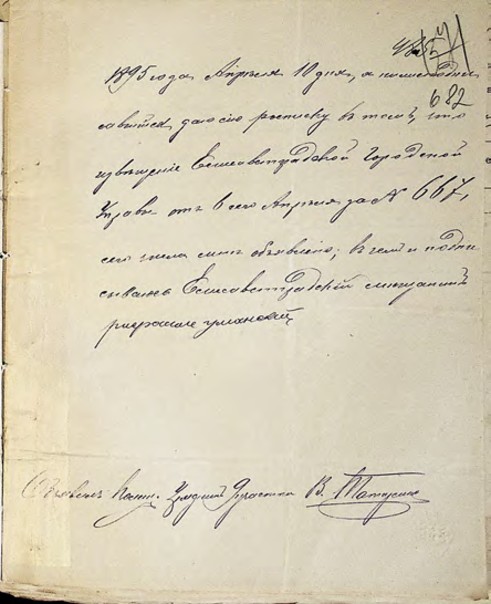 682
1895 года Апреля 10 дня, я нижеподпи
савшийся, даю сию росписку въ томъ, что
извѣщеніе Елисаветградской Городской
Управы отъ 6 сего Апрѣля за № 667,
сего числа мнѣ объявлено; въ чемъ и подпи
сываюсь Елисаветградскій мѣщанинъ
Объявилъ
В.